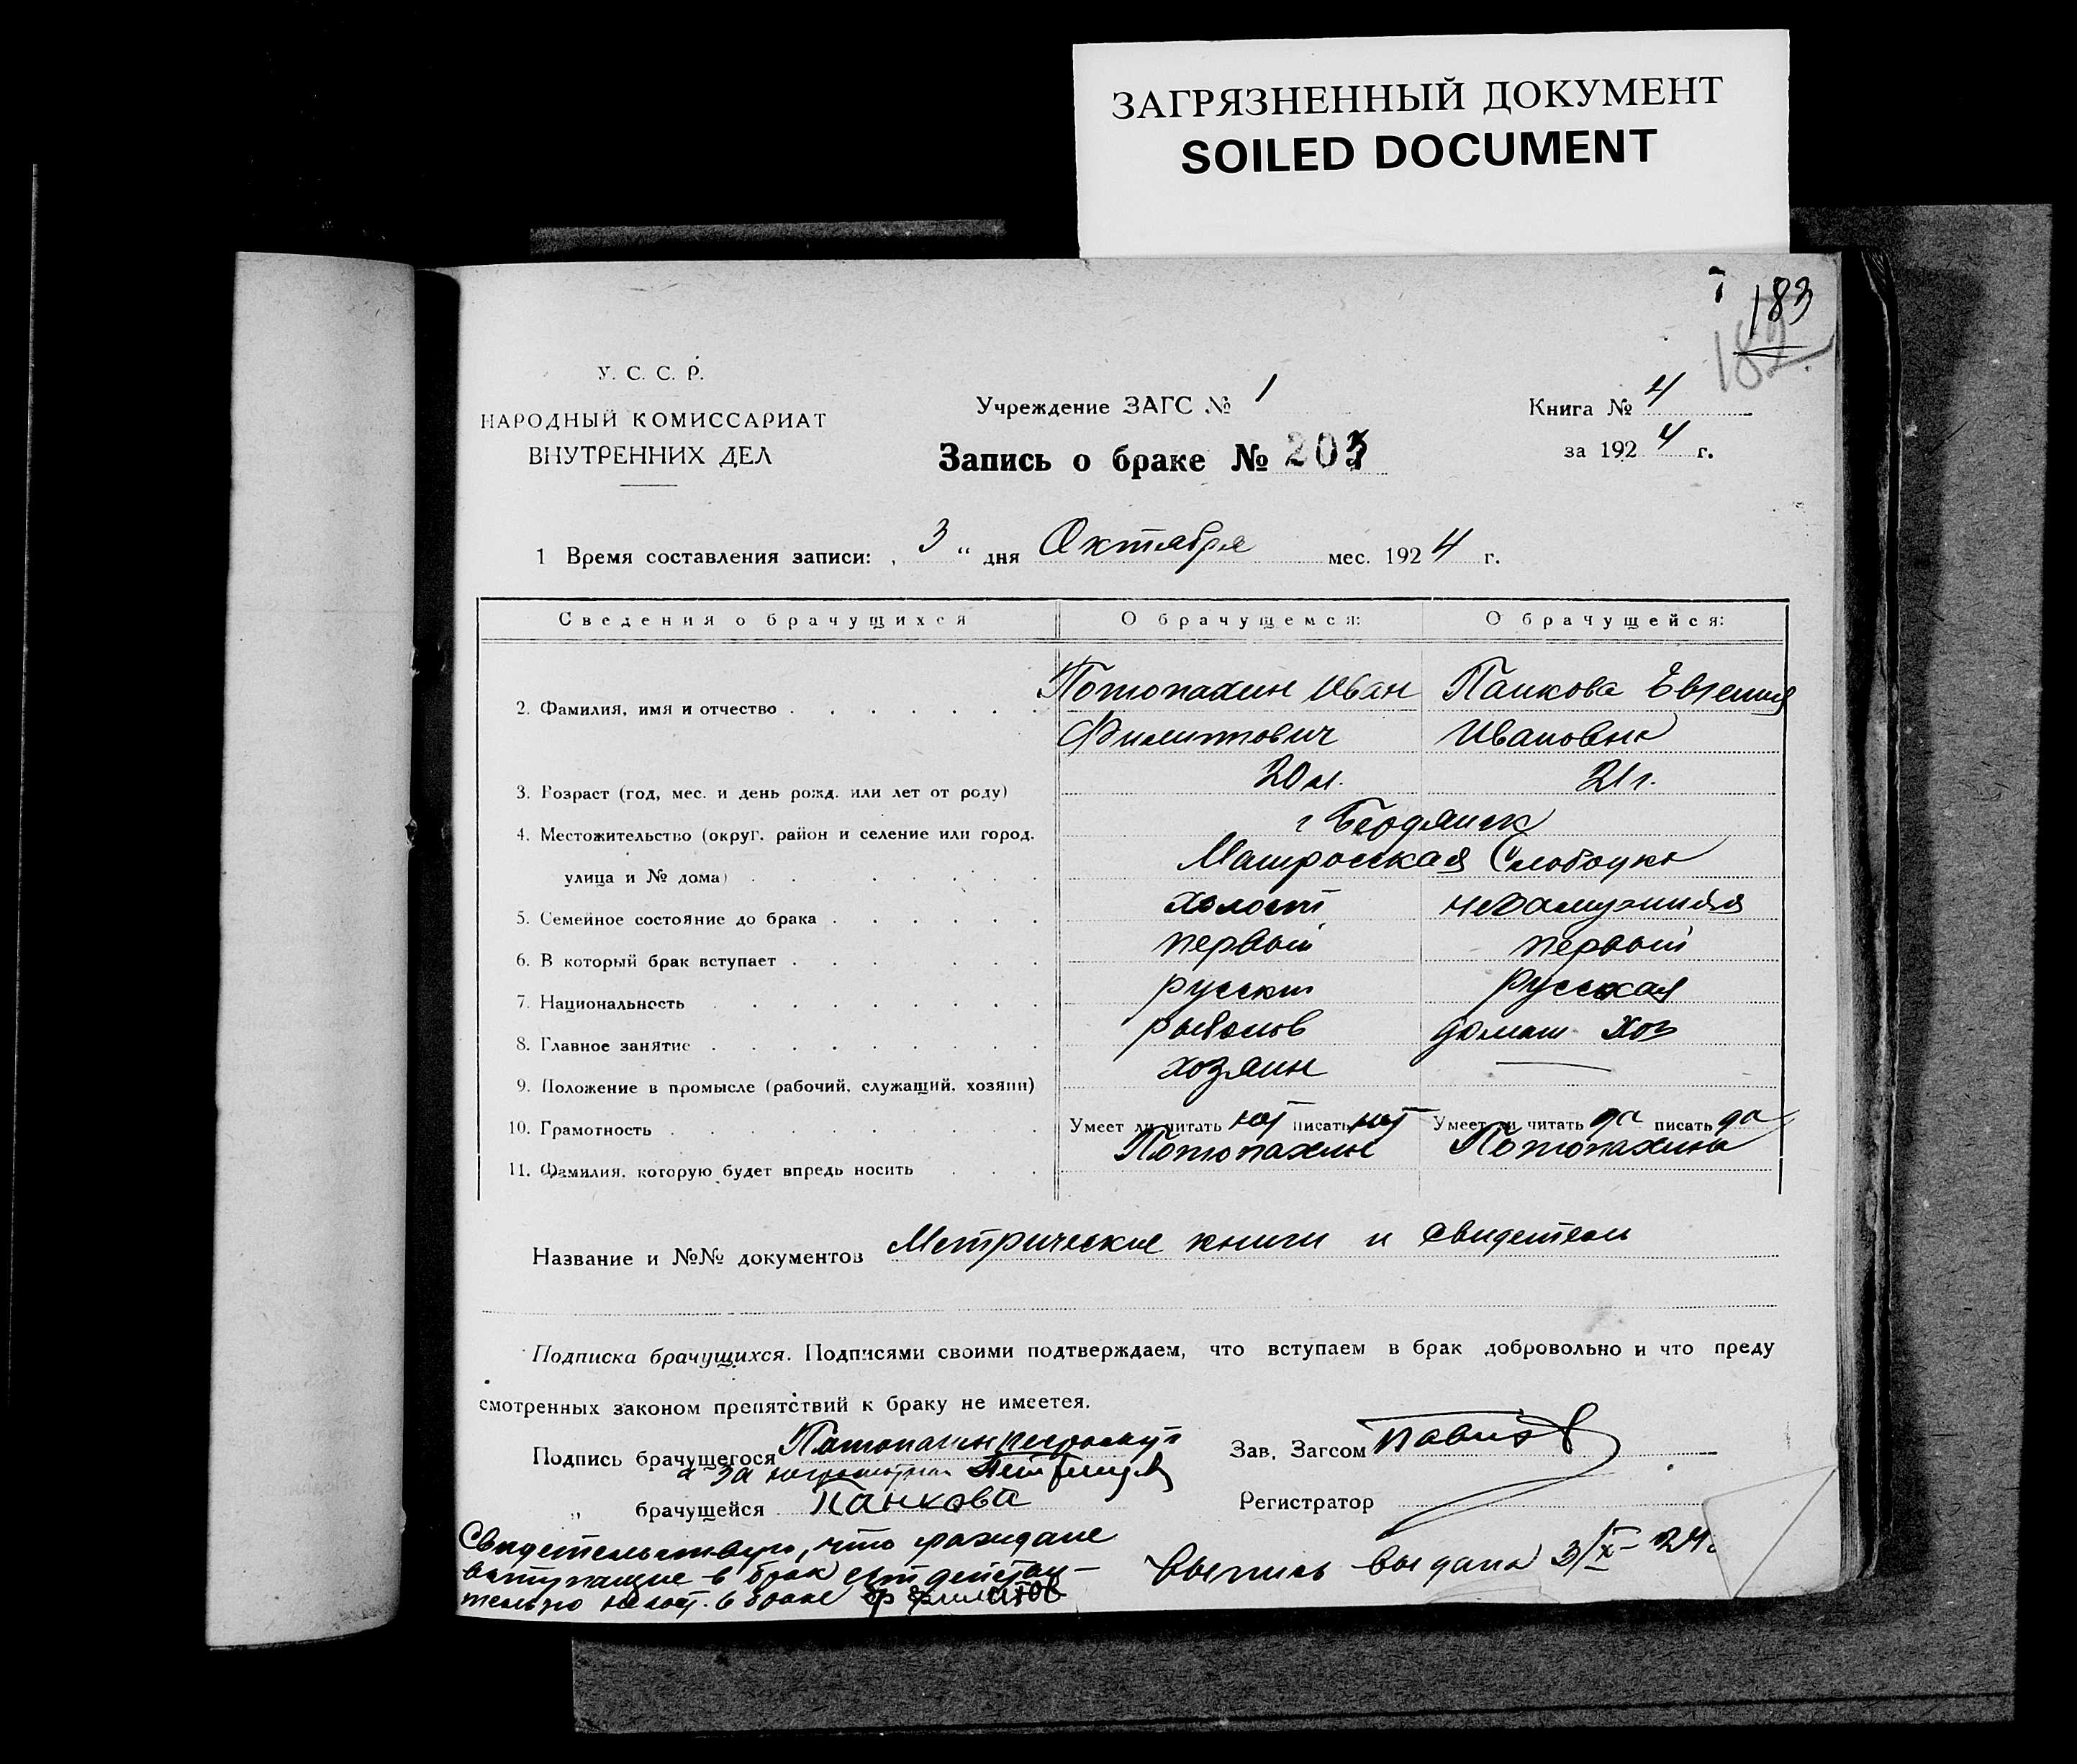 ЗАГРЯЗНЕННЫЙ ДОКУМЕНТ
SOILED DOCUMENT
183
182
У. С. С. Р.
НАРОДНЫЙ КОМИССАРИАТ
ВНУТРЕННИХ ДЕЛ
Учреждение ЗАГС № 1
Запись о браке № 203
Книга № 4
за 1924 г.
1 Время составления записи: „ 3 “ дня Октября мес. 1924 г.
Сведения о брачущихся О брачущемся: О брачущейся:
2. Фамилия, имя и отчество Потопахин Иван Панкова Евгения
Филиппович Ивановна
3. Возраст (год, мес. и день рожд. или лет от роду) 20 л. 21 г.
4. Местожительство (округ, район и селение или город, г Бердянск
улица и № дома) Матросская Слободка
5. Семейное состояние до брака холост незамужняя
6. В который брак вступает первый первый
7. Национальность русский русская
8. Главное занятие рыболов домаш хоз
9. Положение в промысле (рабочий, служащий, хозяин) хозяин —
10. Грамотность Умеет ли читать нет писать нет Умеет ли читать да писать да
11. Фамилия, которую будет впредь носить Потопахин Потопахина
Название и №№ документов Метрические книги и свидетели
Подписка брачущихся. Подписями своими подтверждаем, что вступаем в брак добровольно и что преду
смотренных законом препятствий к браку не имеется.
Подпись брачущегося Потопахин неграмотн
а за неграмотн
„ брачущейся Панкова
Зав. Загсом
Регистратор
Свидетельствую, что граждане
вступающие в брак действи-
тельно не сост. в браке
Выпись выдана 3/X- 24.